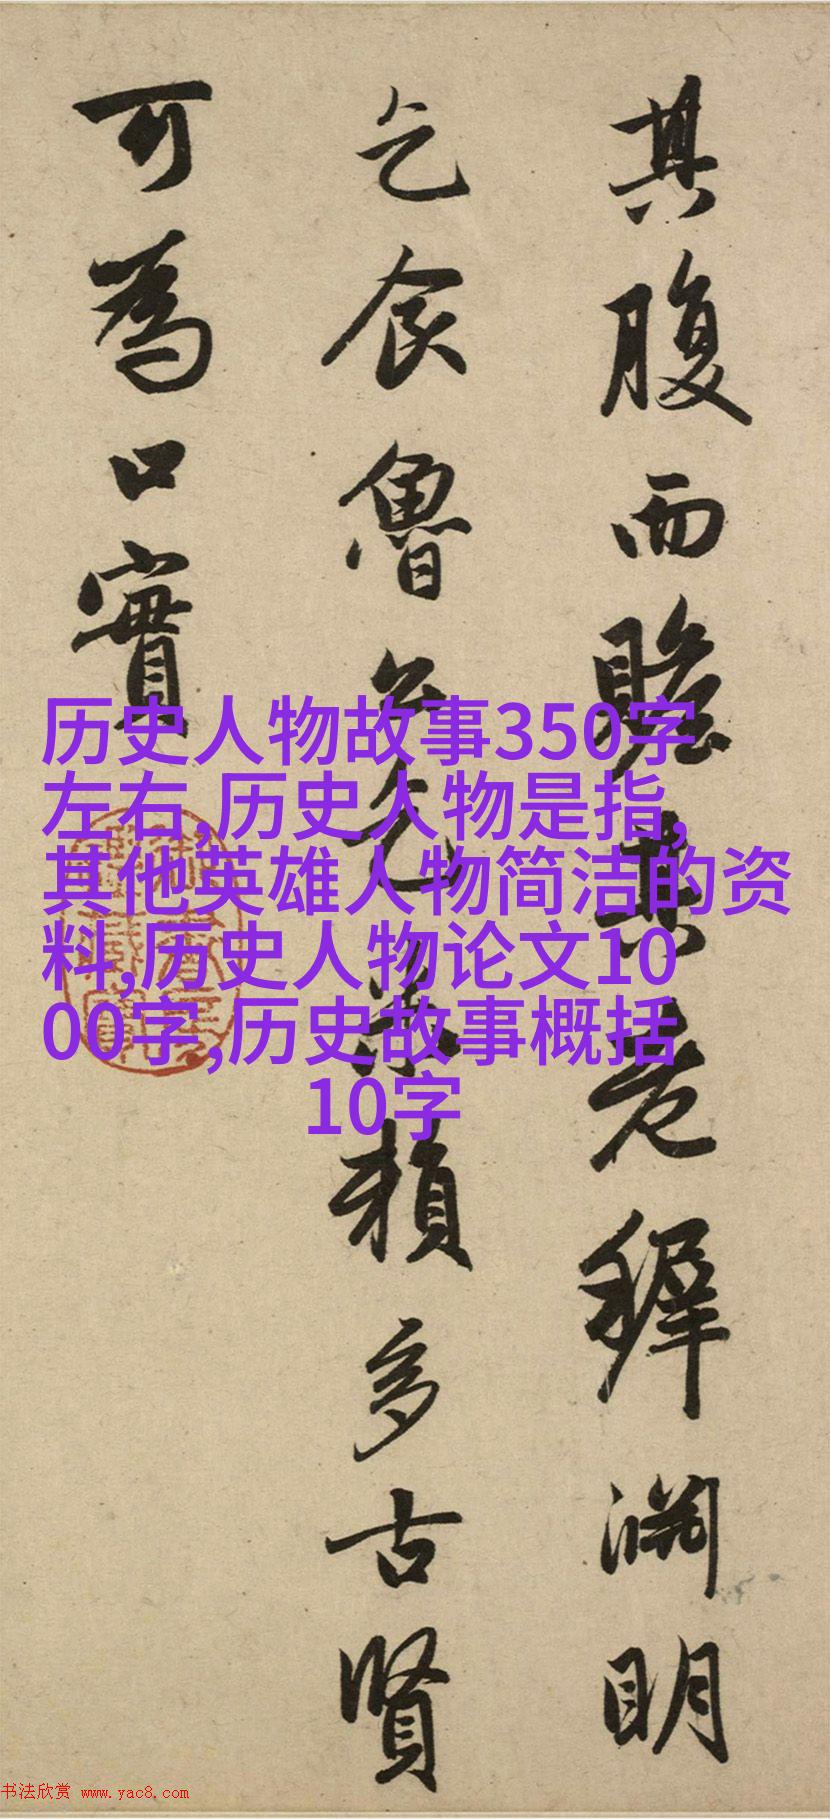 其腹而贍其老稺淵明
乞食魯公乞米賴多古賢
可為口實
历史人物故事350字
左右,历史人物是指,
其他英雄人物简洁的资
料,历史人物论文10
00字,历史故事概括
10字
书法欣赏 www.yac8.com